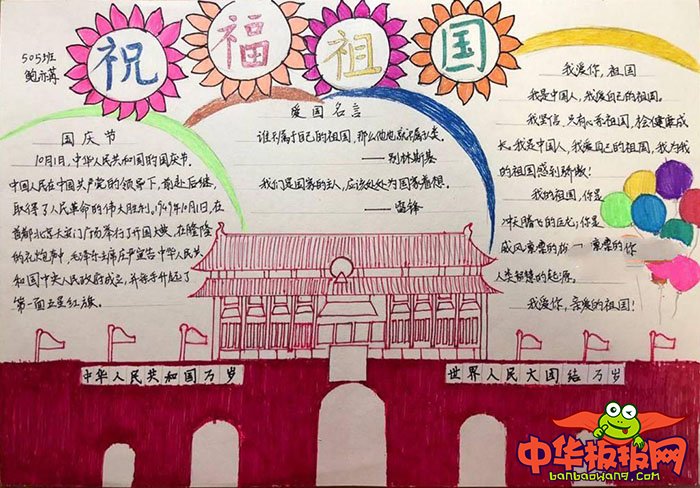 祝福祖国
505班
鲍亦苒
国庆节
10月1日,中华人民共和国的国庆节。
中国人民在中国共产党的领导下,前赴后继,
取得了人民革命的伟大胜利。1949年10月1日,在
首都北京天安门广场举行了开国大典,在隆隆
的礼炮声中,毛泽东主席庄严宣告中华人民共
和国中央人民政府成立,并亲手升起了
第一面五星红旗。
爱国名言
谁不属于自己的祖国,那么他也就不属于人类。
——别林斯基
我们是国家的主人,应该处处为国家着想。
——雷锋
我爱你,祖国
我是中国人,我爱自己的祖国。
我坚信,只有心系祖国,才会健康成
长。我是中国人,我爱自己的祖国,我为我
的祖国感到骄傲!
我的祖国,你是
冲天腾飞的巨龙;你是
威风凛凛的
凛凛的你
人类智慧的起源。
我爱你,亲爱的祖国!
中华人民共和国万岁
世界人民大团结万岁
中华板报网
banbaowang.com